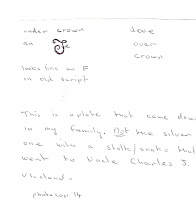 under crown dove
an over
crown
looks like an F
in old script
This is a plate that came down
in my family. Not the silver
one with a stalk/snake that
went to Uncle Charles J.
photocop.